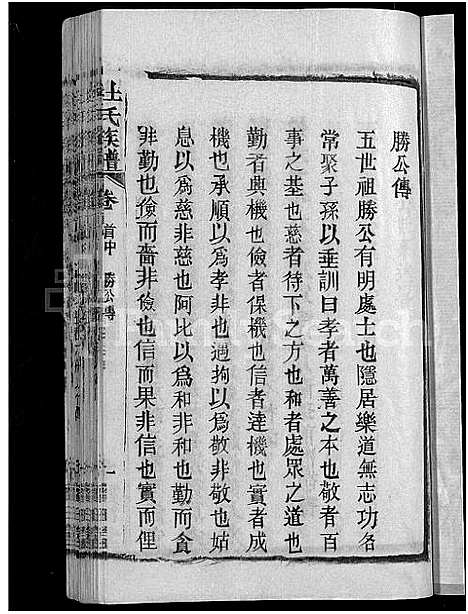 勝公傳
五世祖勝公有明處士也隱居樂道無志功名
常聚子孫以垂訓曰孝者萬善之本也敬者百
事之基也慈者待下之方也和者處眾之道也
勤者興機也儉者保機也信者達機也實者成
機也承順以為孝非也過拘以為敬非敬也姑
息以為慈非慈也阿比以為和非和也勤而貪
非勤也儉而嗇非儉也信而果非信也實而俚
杜氏族譜 卷首中 勝公傳 一